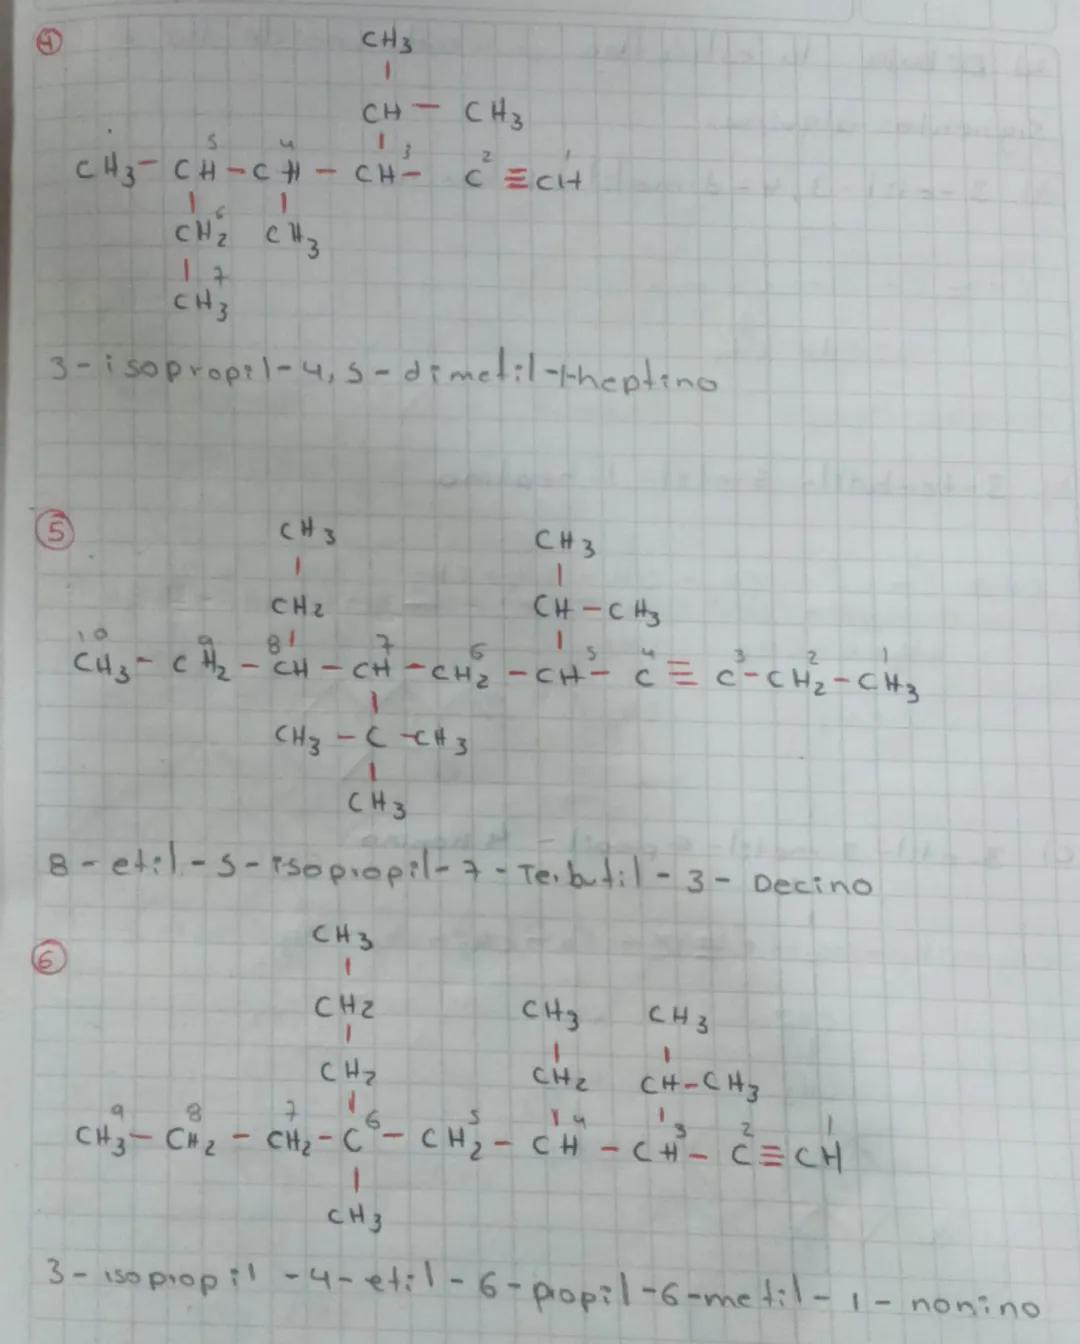 4
CH3
|
CH — CH3
|
CH3 — CH5 — CH4 — CH3 — C2 ≡ CH1
| |
CH2 6 CH3
| 7
CH3
3-isopropil-4,5-dimetil-1-heptino
5
CH3 CH3
| |
CH2 CH — CH3
| |
10 9 8 7 6 5 4 3 2 1
CH3 — CH2 — CH — CH — CH2 — CH — C ≡ C — CH2 — CH3
|
CH3 — C — CH3
|
CH3
8-etil-5-isopropil-7-Terbutil-3-Decino
6
CH3
|
CH2 CH3 CH3
| | |
CH2 CH2 CH — CH3
| | |
9 8 7 6 5 4 3 2 1
CH3 — CH2 — CH2 — C — CH2 — CH — CH — C ≡ CH
|
CH3
3-isopropil-4-etil-6-propil-6-metil-1-nonino